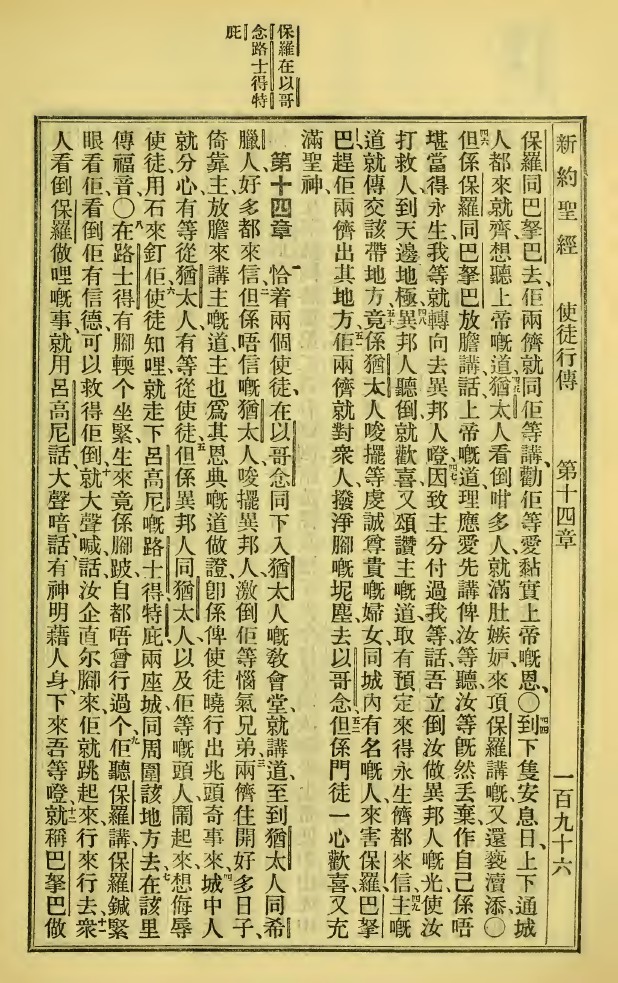 保羅在以哥
念路士得特
庇
新約聖經　使徒行傳　第十四章　一百九十六
保羅同巴拏巴去、佢兩儕就同佢等講、勸佢等愛黏實上帝嘅恩、〇四四到下隻安息日、上下通城
人都來就齊、想聽上帝嘅道、四五猶太人看倒咁多人、就滿肚嫉妒、來頂保羅講嘅、又還褻瀆添、〇
四六但係保羅同巴拏巴放膽講話、上帝嘅道理應愛先講俾汝等聽、汝等旣然丢棄、作自己係唔
堪當得永生、我等就轉向去異邦人噔、四七因致主分付過我等、話、吾立倒汝做異邦人嘅光、使汝
打救人到天邊地極、四八異邦人聽倒就歡喜、又頌讚主嘅道、取有預定來得永生儕都來信、四九主嘅
道就傳交該帶地方、五十竟係猶太人唆擺等虔誠尊貴嘅婦女、同城內有名嘅人、來害保羅巴拏
巴、趕佢兩儕出其地方、五一佢兩儕就對衆人撥淨腳嘅坭塵、去以哥念、五二但係門徒一心歡喜、又充
滿聖神、
第十四章　一恰着兩個使徒、在以哥念同下入猶太人嘅敎會堂、就講道、至到猶太人同希
臘人、好多都來信、二但係唔信嘅猶太人、唆擺異邦人、激倒佢等惱氣兄弟、三兩儕住開好多日子、
倚靠主、放膽來講主嘅道、主也爲其恩典嘅道做證、卽係俾使徒曉行出兆頭奇事來、四城中人
就分心、有等從猶太人、有等從使徒、五但係異邦人同猶太人、以及佢等嘅頭人、鬧起來、想侮辱
使徒、用石來釘佢、六使徒知哩、就走下呂高尼嘅路士得特庇兩座城、同周圍該地方去、七在該里
傳福音、〇八在路士得有腳輭个坐緊、生來竟係腳跛、自都唔曾行過、九个佢聽保羅講、保羅鍼緊
眼看佢、看倒佢有信德、可以救得佢倒、十就大聲喊、話、汝企直尔腳來、佢就跳起來、行來行去、十一衆
人看倒保羅做哩嘅事、就用呂高尼話、大聲喑、話、有神明藉人身、下來吾等噔、十二就稱巴拏巴做